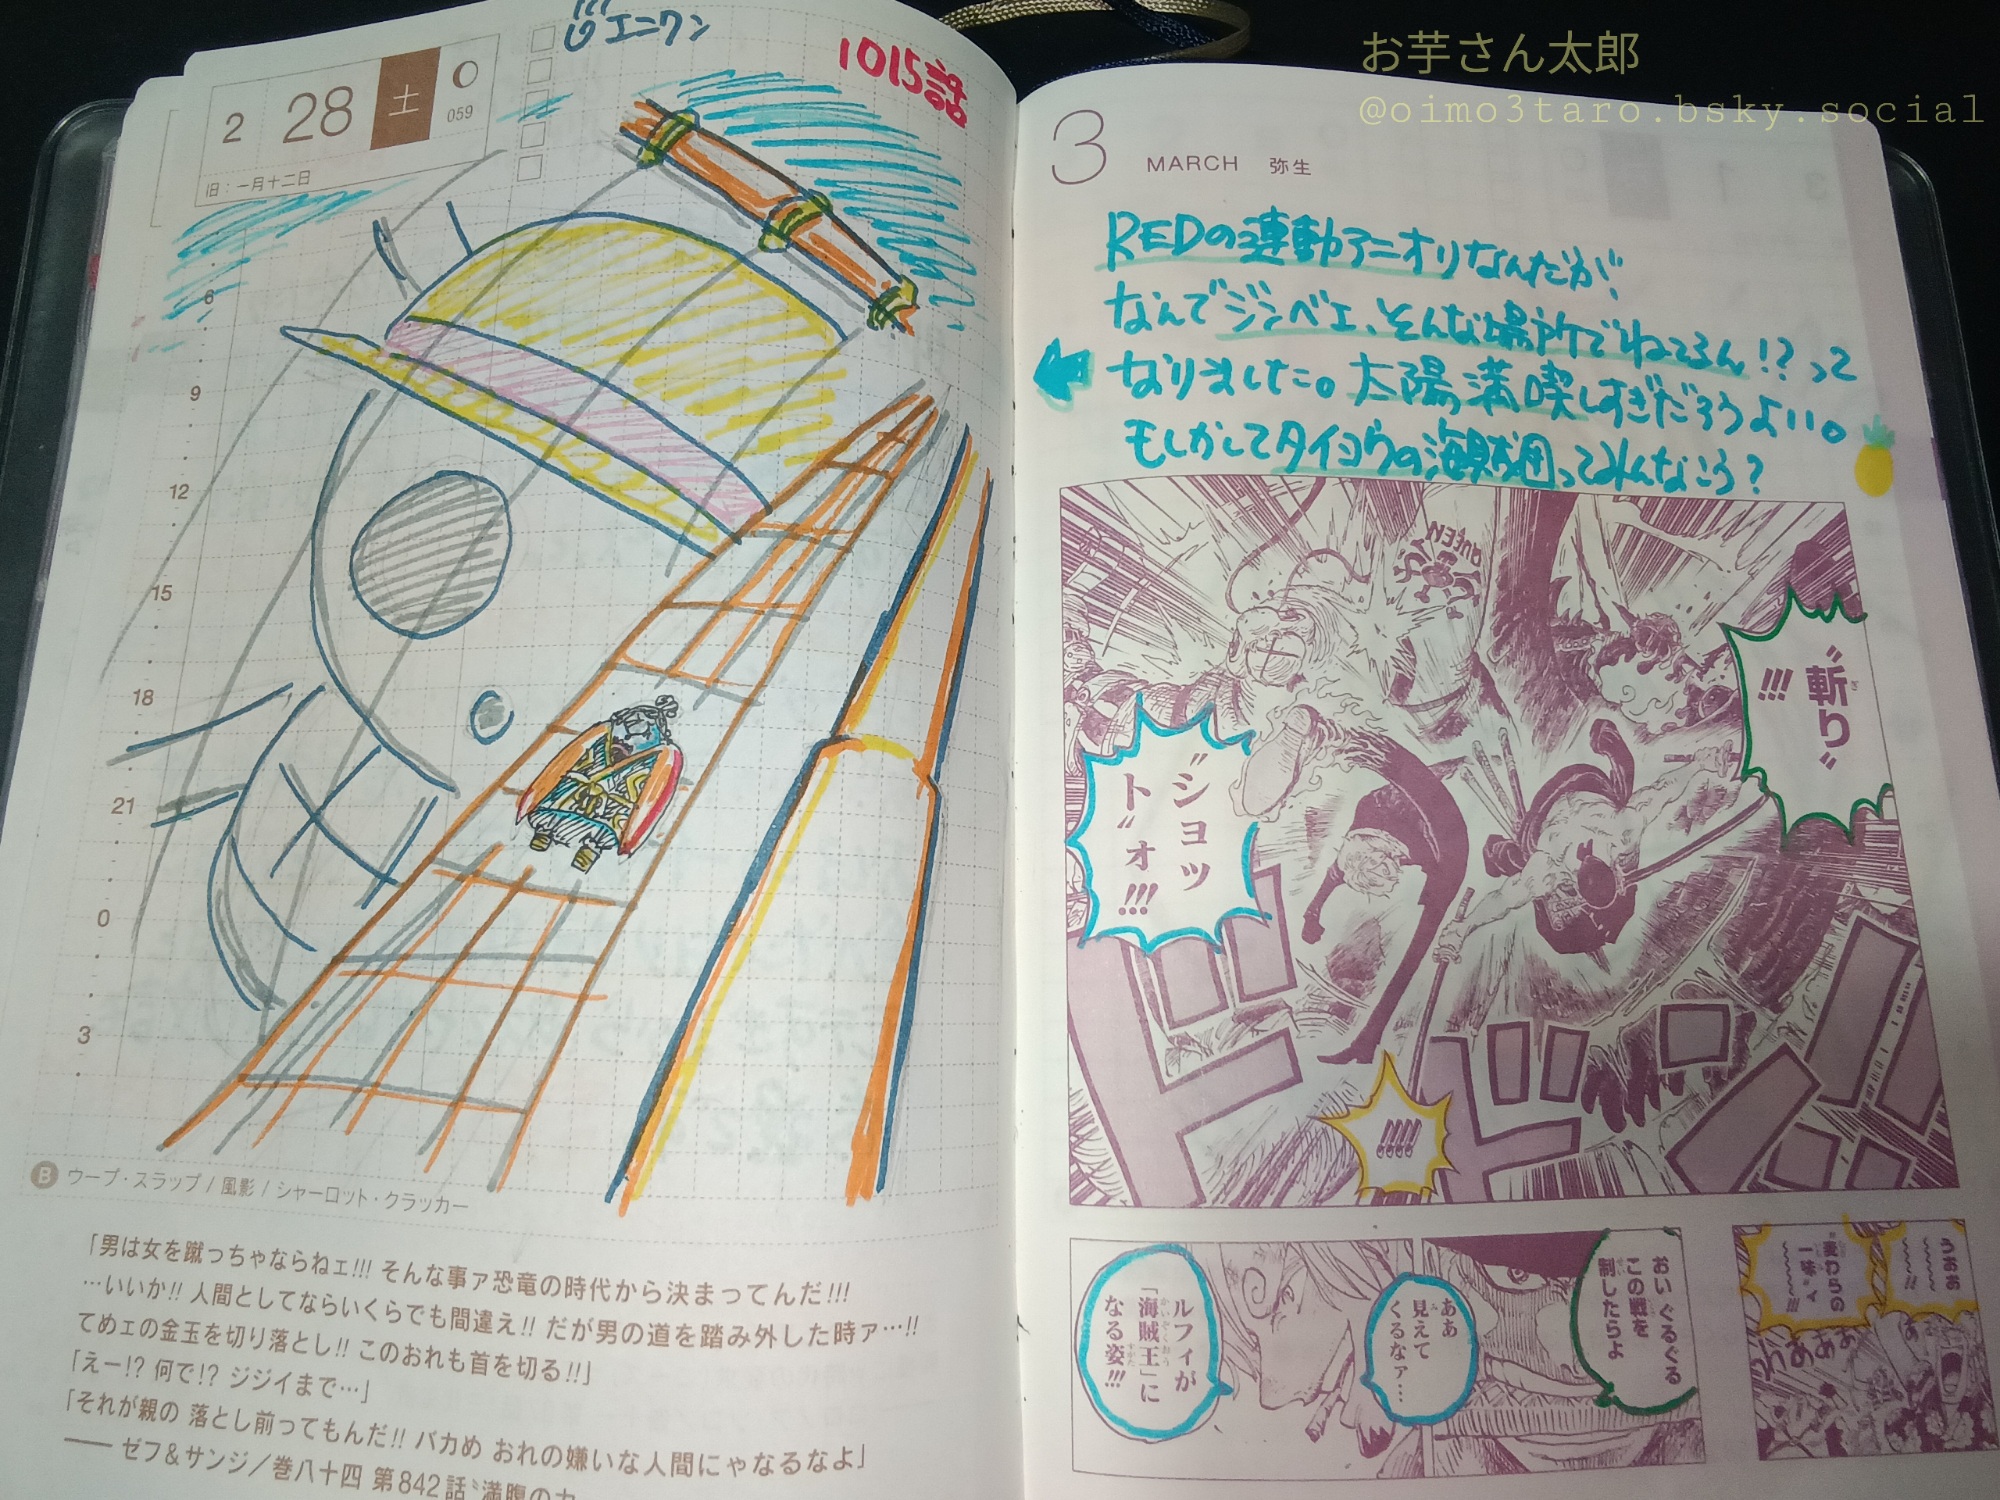 エニワン
1015話
2 28 土
059
旧：一月十二日
6
9
12
15
18
21
0
3
B ウープ・スラップ / 風影 / シャーロット・クラッカー
「男は女を蹴っちゃならねェ!!! そんな事ァ恐竜の時代から決まってんだ!!!
…いいか!! 人間としてならいくらでも間違え!! だが男の道を踏み外した時ァ…!!
てめェの金玉を切り落とし!! このおれも首を切る!!」
「えー!? 何で!? ジジイまで…」
「それが親の 落とし前ってもんだ!! バカめ おれの嫌いな人間にゃなるなよ」
―― ゼフ&サンジ／巻八十四 第842話
お芋さん太郎
@oimo3taro.bsky.social
3 MARCH 弥生
REDの連動アニオリなんだが!
なんでジンベエ、そんな場所でねてるん!?って
なりました。太陽満喫しすぎだろうよい。
もしかしてタイヨウの海賊団ってみんなこう?
QUEEN
"斬り"
!!!
"ショッ
ト"ォ!!!
!!!!
おい ぐるぐる
この戦を
制したらよ
ああ
見えて
くるなァ…
ルフィが
「海賊王」に
なる姿!!!
うおお
"麦わらの
一味"ィ